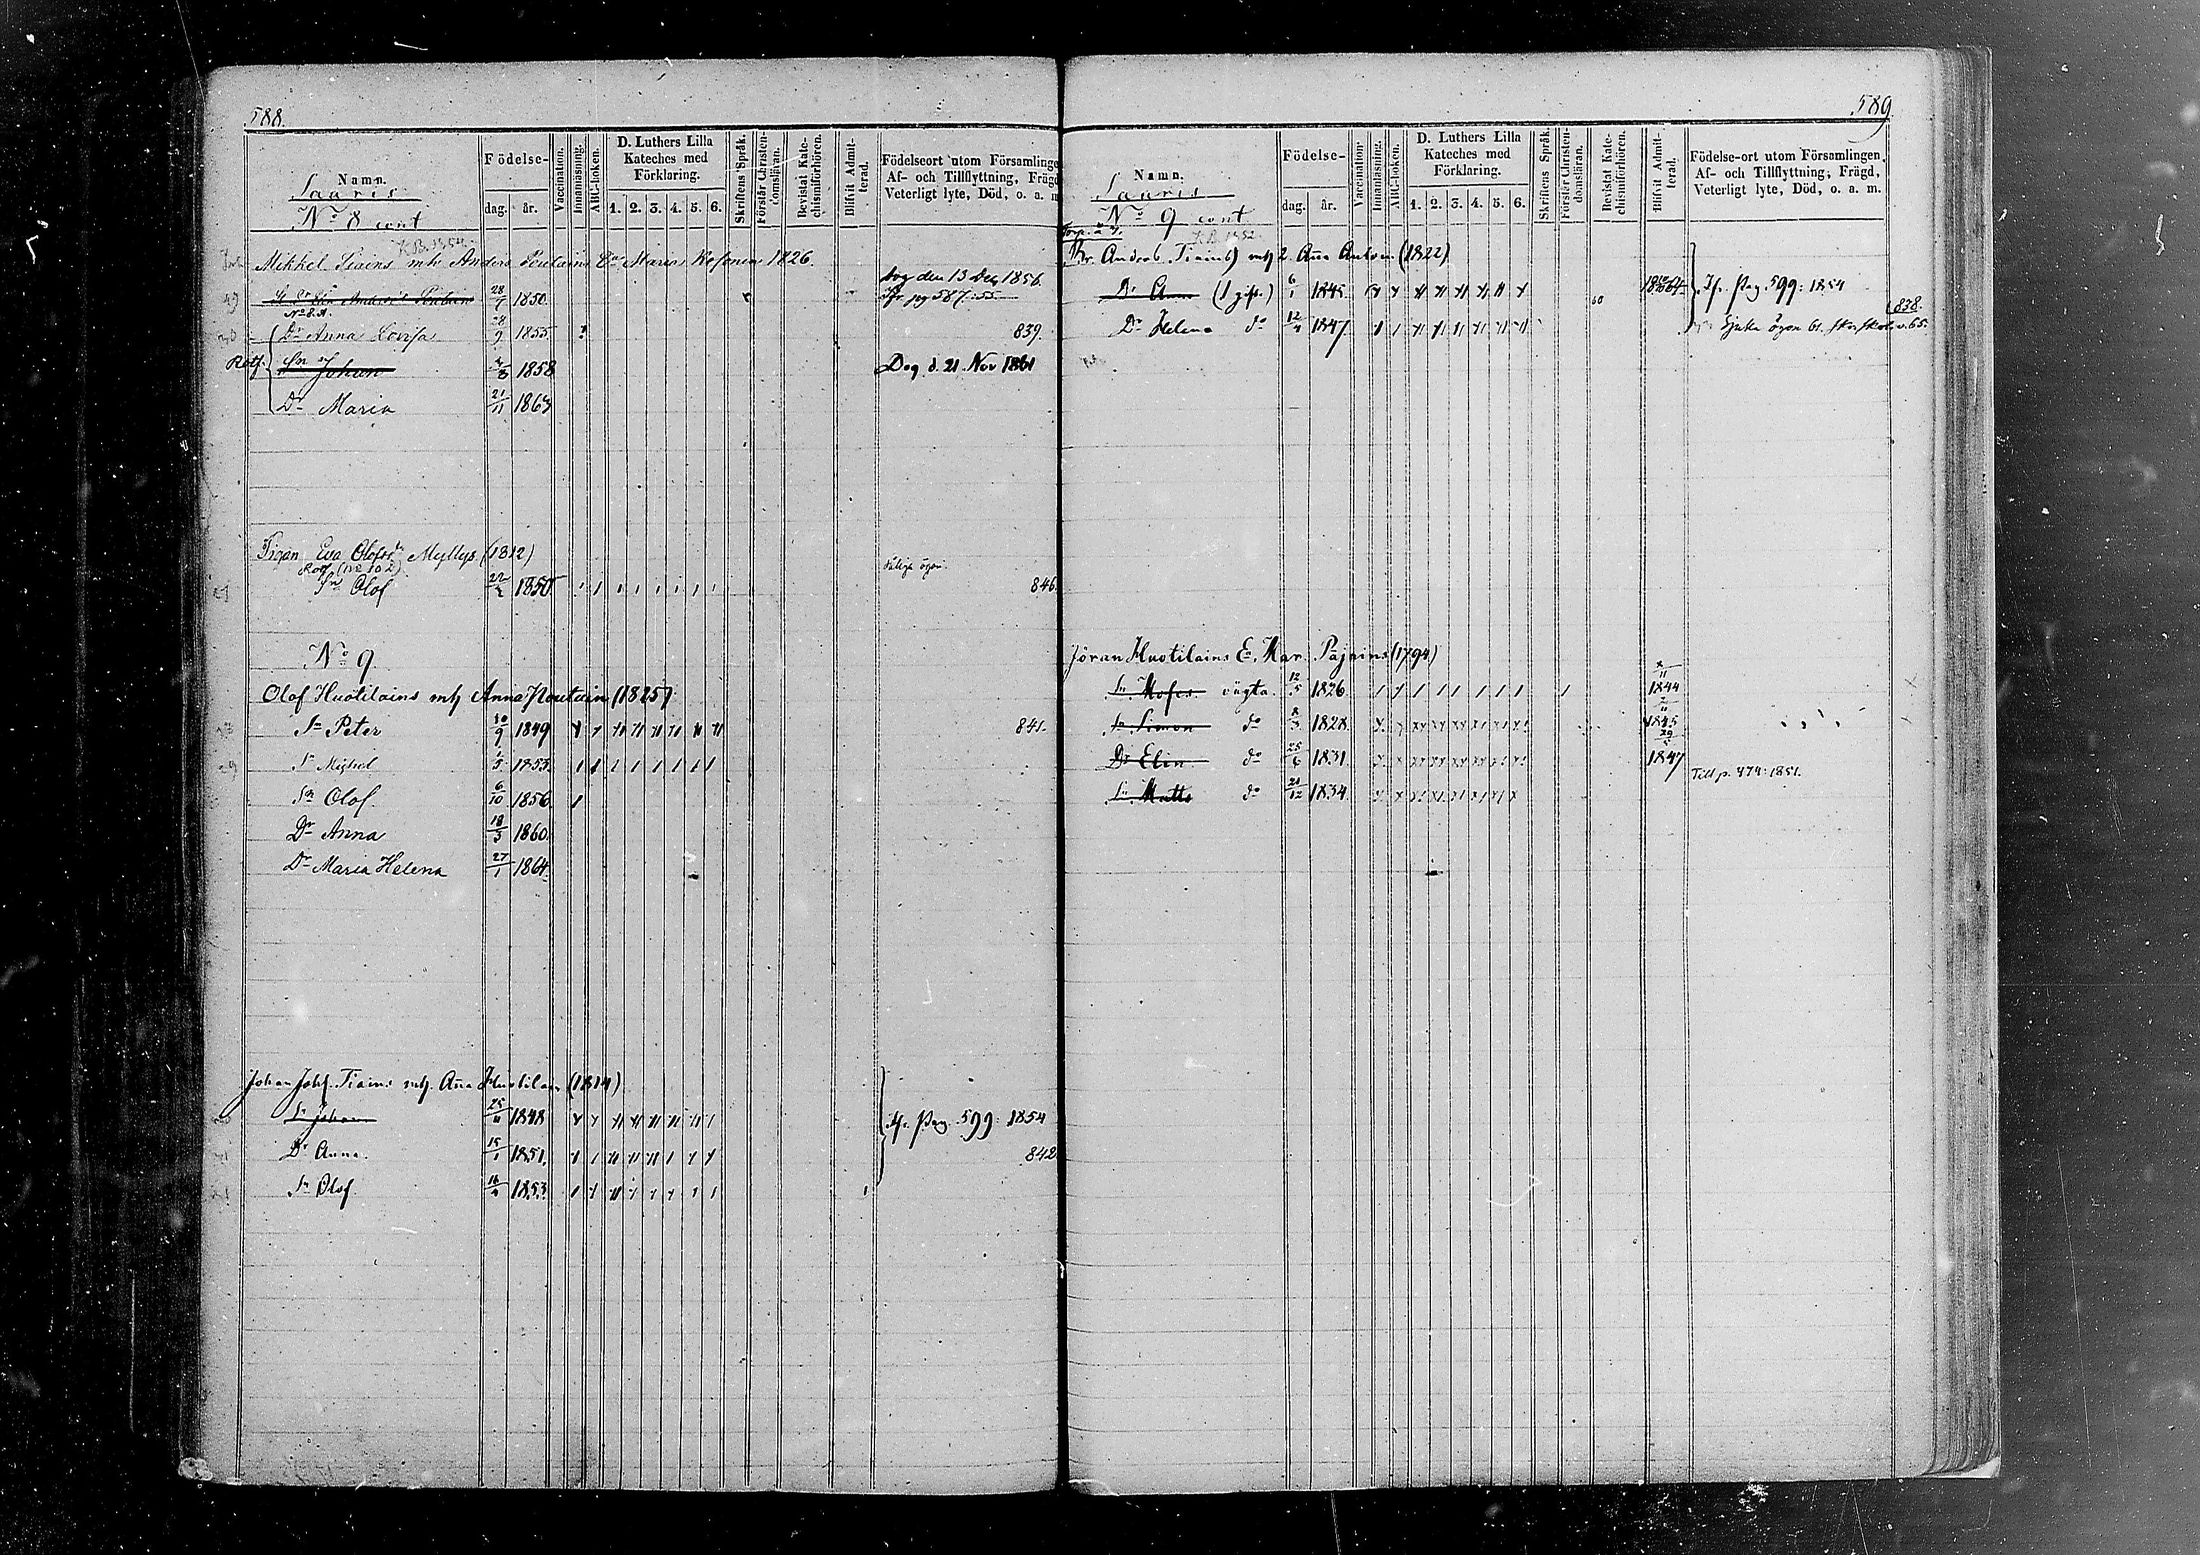 588.
Namn.
Saaris
No 8 cont
Födelse-
dag. år.
Vaccination.
Innanläsning.
ABC-boken.
D. Luthers Lilla
Kateches med
Förklaring.
1. 2. 3. 4. 5. 6.
Skriftens Språk.
Förstår Christen-
domsläran.
Bevistat Kate-
chismiförhören.
Blifvit Admit-
terad.
Födelseort utom Församlinge
Af- och Tillflyttning, Frägd
Veterligt lyte, Död, o. a. m
Mikkel Tiains mh Anders Poutains Dr Maria Kosonen 1826
dog den 13 Dec 1856
28/7 1850. pag 587: 55
No 8. A.
Dr Anna Lovisa 28/9 1855 839.
Rotf. Sn Johan 1858 Dog d. 21 Nov 1861
Dr Maria 21/11 1863
Pigan Eva Olofsdr Myllys (1812)
Rotf (No 10 2) dåliga ögon.
Sn Olof 22/2 1850 846.
No 9
Olof Huotilains mh Anna Poutain (1825)
Sn Peter 30/9 1849 841.
Sn Mighel 1/5 1853.
Sn Olof 6/10 1856
Dr Anna 18/3 1860
Dr Maria Helena 27/1 1864.
Johan Johs. Tiains mh. Aña Huotilain (1814)
Sn Johan 25/11 1848 Jfr. Pag. 599: 1854
Dr Anna. 15/1 1851. 842
Sn Olof 16/4 1853.
589
Namn.
Saaris
No 9 cont
Födelse-
dag. år.
Vaccination
Innanläsning.
ABC-boken.
D. Luthers Lilla
Kateches med
Förklaring.
1. 2. 3. 4. 5. 6.
Skriftens Språk.
Förstår Christen-
domsläran.
Bevistat Kate-
chismiförhören.
Blifvit Admit-
terad.
Födelse-ort utom Församlingen,
Af- och Tillflyttning, Frägd,
Veterligt lyte, Död, o. a. m.
Br. Anders. Tiains) mh 2. Aña Antson (1822)
Dr Anna (1 gift.) 6/1 1845. 60 64. Jf. Pag. 599: 1854
838.
Dr Helena do 12/4 1847. Sjuka ögon 61.
Jöran Huotilains E. Mar. Pajains (1794)
Sn Moses oägta. 12/5 1826. 1844
Sn Simon do 8/3 1828. 1845
Dr Elin do 25/6 1831. 29/5 1847
Till p. 474: 1851.
Sn Matts do 21/12 1834.